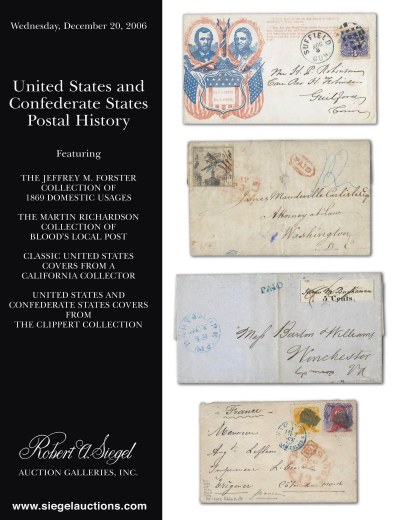 Wednesday, December 20, 2006
United States and
Confederate States
Postal History
Featuring
THE JEFFREY M. FORSTER
COLLECTION OF
1869 DOMESTIC USAGES
THE MARTIN RICHARDSON
COLLECTION OF
BLOOD'S LOCAL POST
CLASSIC UNITED STATES
COVERS FROM A
CALIFORNIA COLLECTOR
UNITED STATES AND
CONFEDERATE STATES COVERS
FROM
THE CLIPPERT COLLECTION
Robert A. Siegel
AUCTION GALLERIES, INC.
www.siegelauctions.com
SUFFIELD
Guilford
Conn
PAID
James Mandeville Carlisle Esq
Attorney at Law
Washington
D. C.
PAID
James M. Buchanan
5 Cents.
Mess Barton & Williams
Winchester
Va
France
Monsieur